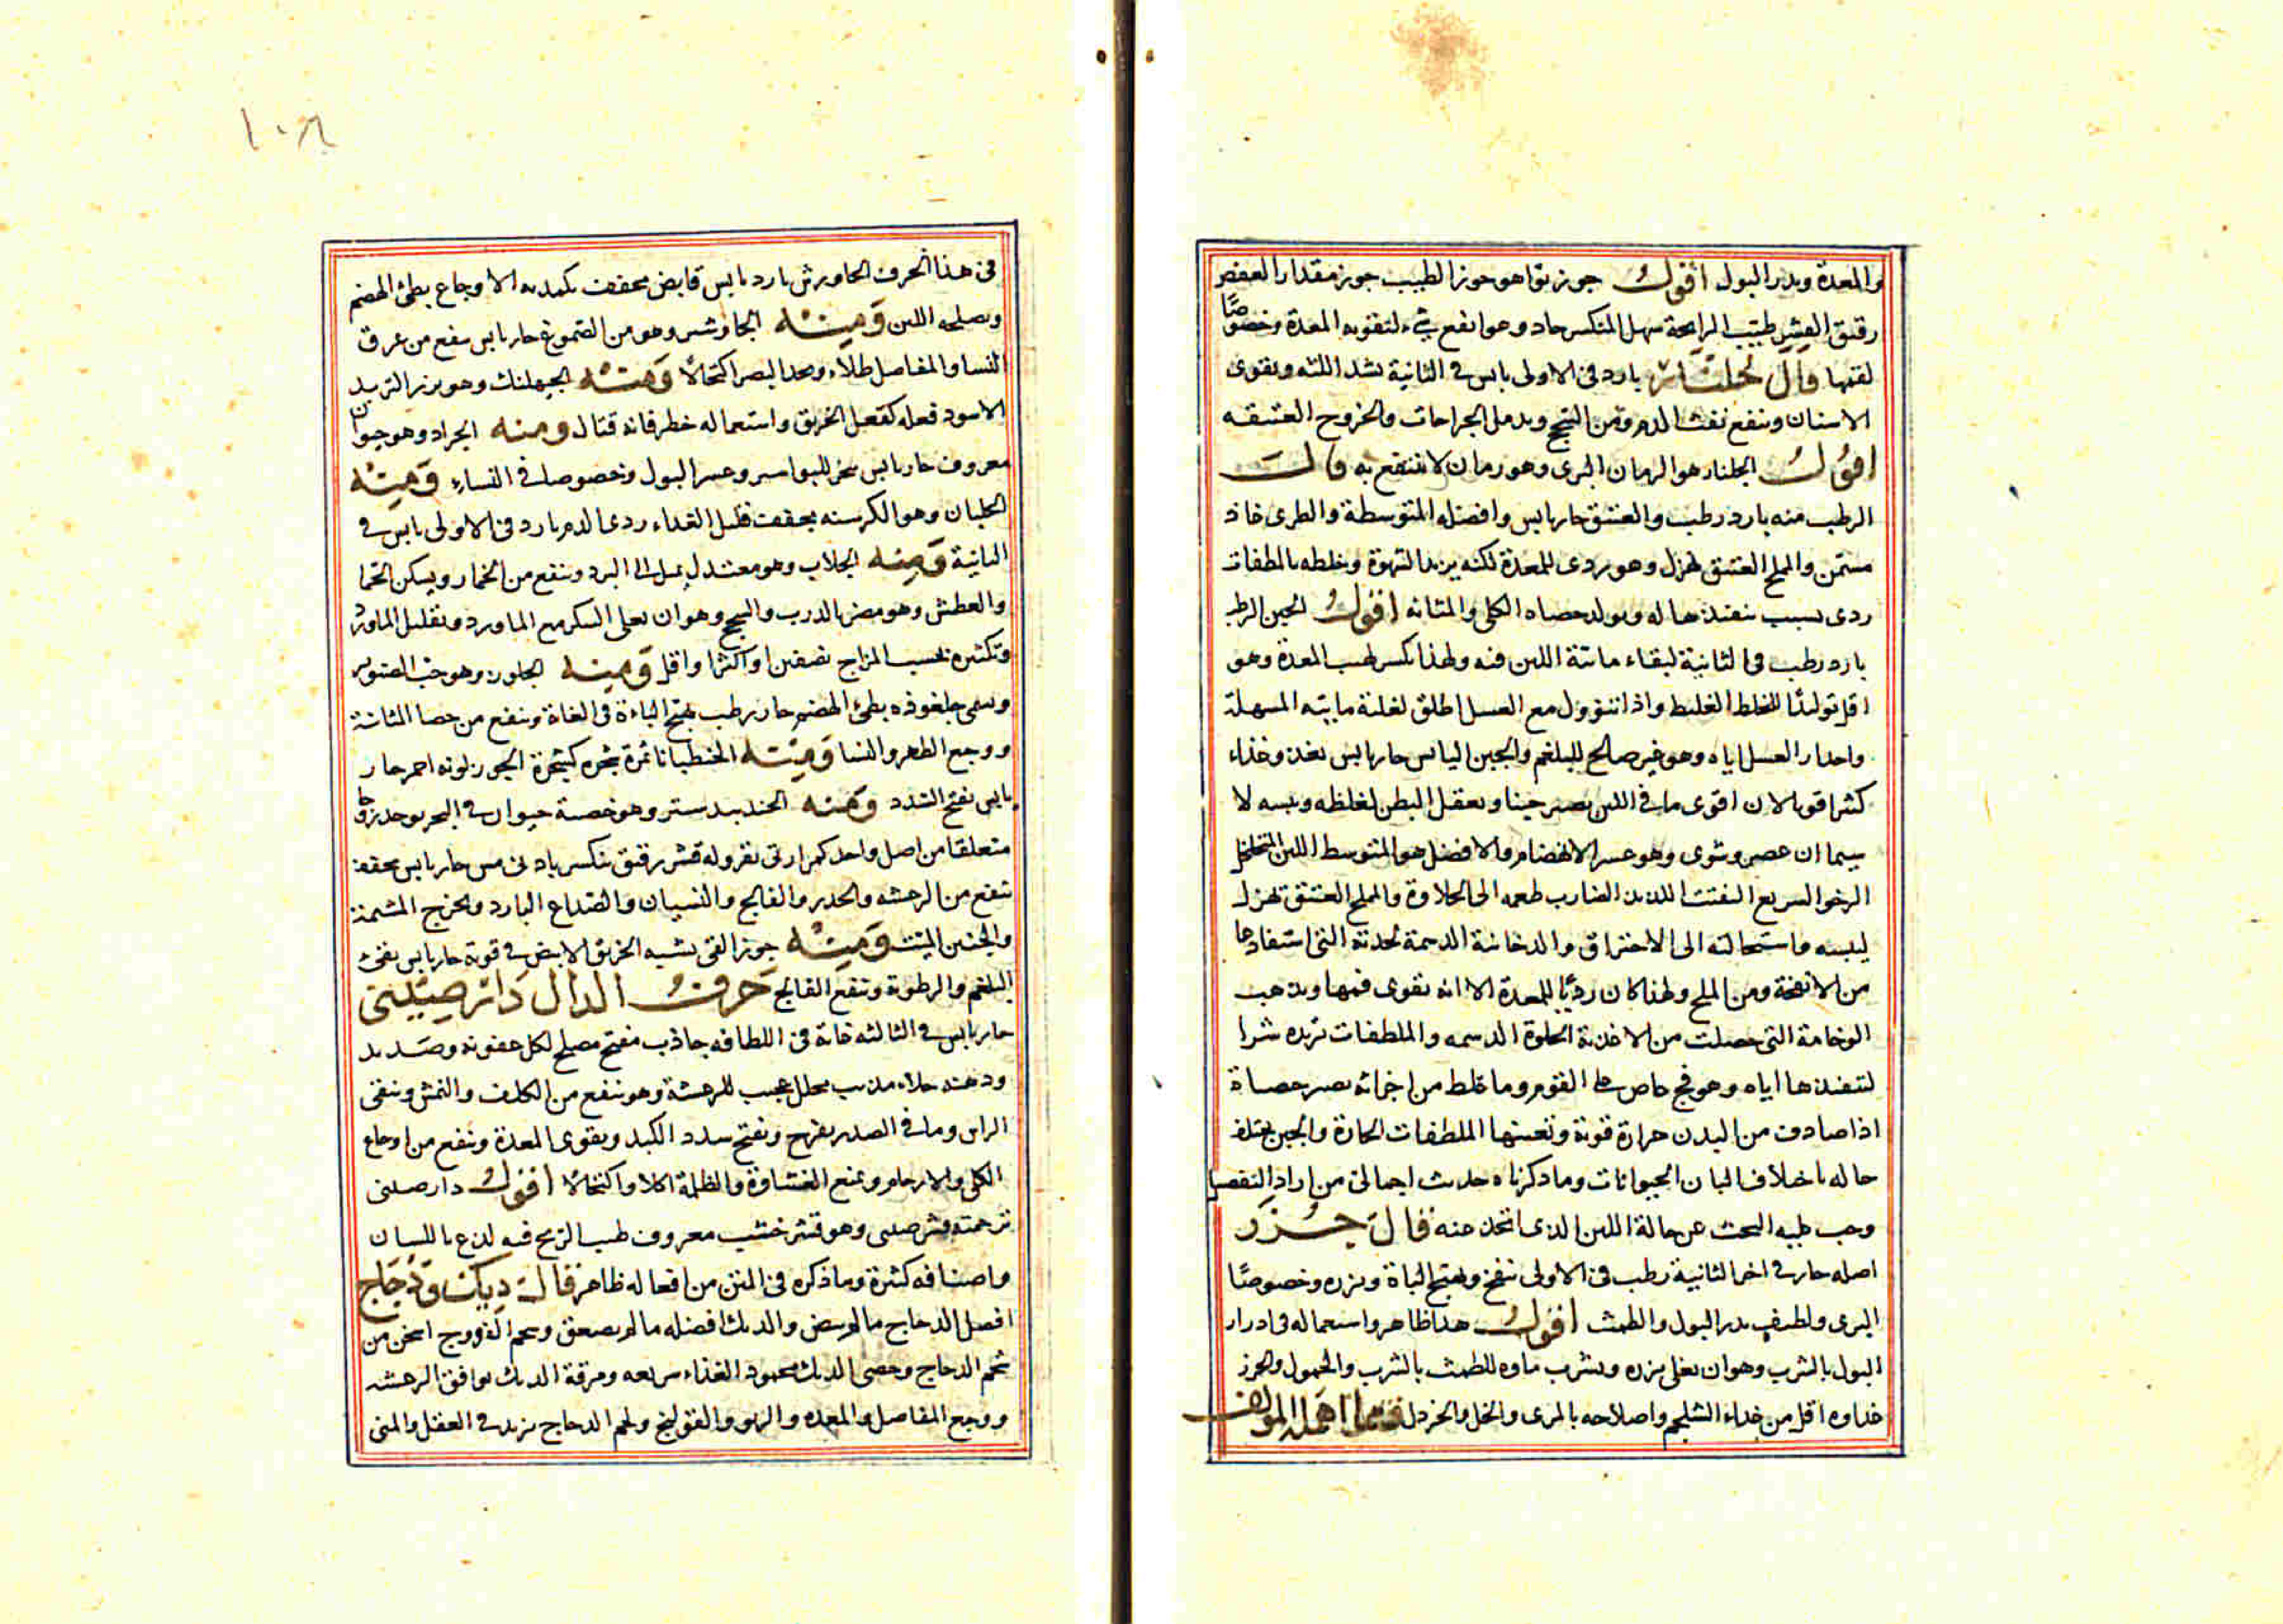 والمعدة ويدر البول اقول جوز بوا هو جوز الطيب جوز مقدار العفص
رقيق القشر طيب الرايحة سهل المنكسر حاد وهو انفع شيء لتقوية المعدة وخصوصًا
لفمها قال جلنار بارد في الاولى يابس في الثانية يشد اللثه ويقوى
الاسنان وينفع نفث الدم ومن السحج ويدمل الجراحات والقروح العتيقه
اقول الجلنار هو الرمان البرى وهو رمان لا ينتفع به قال
الرطب منه بارد رطب والعتيق حار يابس وافضله المتوسطة والطرى غاذ
مسمن والملح العتيق يهزل وهو ردى للمعدة لكنه يزيد الشهوة وخلطه بالملطفات
ردى بسبب تنفيذها له ويولد حصاه الكلى والمثانه اقول الجبن الرطب
بارد رطب في الثانية لبقاء مائية اللبن فيه ولهذا يكسر لهيب المعدة وهو
اقل توليدًا للخلط الغليظ واذا تنوول مع العسل اطلق لغلبة مايته المسهلة
واحدار العسل اياه وهو غير صالح للبلغم والجبن اليابس حار يابس يغذو غذاء
كثيرا قويا لان اقوى ما في اللبن يصير جبنا ويعقل البطن لغلظه ويبسه لا
سيما ان عصر وشوى وهو عسر الانهضام والافضل هو المتوسط اللين المتخلخل
الرخو السريع التفتت اللذيذ الضارب طعمه الى الحلاوة والملح العتيق يهزل
ليبسه واستحالته الى الاحتراق والدخانية الدسمة لحدته التى استفادها
من الانفحة ومن الملح ولهذا كان رديًا للمعدة الا انه يقوى فمها ويذهب
الوخامة التى حصلت من الاغذية الحلوة الدسمه والملطفات تزيده شرا
لتنفيذها اياه وهو فج حاص على القوم وما غلظ من اجزائه يصير حصاة
اذا صادف من البدن حرارة قوية وتعينها الملطفات الحارة والجبن يختلف
حاله باختلاف البان الحيوانات وما ذكرناه حديث اجمالى من اراد التفصيل
وجب عليه البحث عن حالة اللبن الذى اتخذ منه قال جزر
اصله حار في اخر الثانية رطب في الاولى ينفخ ويهيج الباة وبزره وخصوصًا
البرى ولطيف يدر البول والطمث اقول هذا ظاهر واستعماله في ادرار
البول بالشرب وهو ان يغلى بزره ويشرب ماوه للطمث بالشرب والحمول والجزر
غذاوه اقل من غذاء الشلجم واصلاحه بالمرى والخل والخردل فمما اهمله المولف
١٠٨
في هذا الحرف الجاورش بارد يابس قابض مجفف يكمد به الاوجاع بطئ الهضم
ويصلحه اللبن ومنه الجاوشير وهو من الصموغ حار يابس ينفع من عرق
النسا والمفاصل طلاء ويحد البصر اكتحالًا ومنه الجبهلنك وهو بزر التربد
الاسود فعله كفعل الخربق واستعماله خطر فانه قتال ومنه الجراد وهو حيوان
معروف حار يابس بخر للبواسير وعسر البول وخصوصا في النساء ومنه
الجلبان وهو الكرسنه مجفف قليل الغذاء ردى الدم بارد في الاولى يابس في
الثانية ومنه الجلاب وهو معتدل يميل الى البرد وينفع من الخمار ويسكن الحما
والعطش وهو مضر بالذرب والسحج وهو ان يغلى السكر مع الماورد وتقليل الماورد
وتكثيره بحسب المزاج نصفين او اكثر او اقل ومنه الجلوز وهو حب الصنوبر
ويسمى جلغوذه بطئ الهضم حار رطب يهيج الباءة في الغاة وينفع من حصا المثانة
ووجع الظهر والنسا ومنه الجنطيانا ثمرة شجره كشجرة الجوز لونه احمر حار
يابس يفتح السدد ومنه الجندبيدستر وهو خصية حيوان في البحر يوجد زوجا
متعلقا من اصل واحد كمرارتى بقر وله قشر رقيق ينكسر بادنى مس حار يابس مجفف
ينفع من الرعشه والخدر والفالج والنسيان والصداع البارد ويخرج المشيمة
والجنين الميت ومنه جوز القى يشبه الخربق الابيض في قوته حار يابس يقئ
البلغم والرطوبة وينفع الفالج حرف الدال دار صينى
حار يابس في الثالثه غاية في اللطافه جاذب مفتح مصلح لكل عفونه وصديد
ودهنه حلاء مذيب محلل عجيب للرعشة وهو ينفع من الكلف والنمش وينقى
الراس وما في الصدر يفرح ويفتح سدد الكبد ويقوى المعدة وينفع من اوجاع
الكلى والارحام ويمنع الغشاوة والظلمة اكلا واكتحالًا اقول دارصينى
ترجمته قشر صينى وهو قشر خشب معروف طيب الريح فيه لذع باللسان
واصنافه كثيرة وما ذكره في المتن من افعاله ظاهر قال ديك ودجاج
افضل الدجاج ما لم يبض والديك افضله ما لم يصعق ولحم الفروج اسخن من
شحم الدجاج وخصى الديك محمود الغذاء سريعه ومرقة الديك يوافق الرعشه
ووجع المفاصل والمعده والربو والقولنج ولحم الدجاج يزيد في العقل والمنى